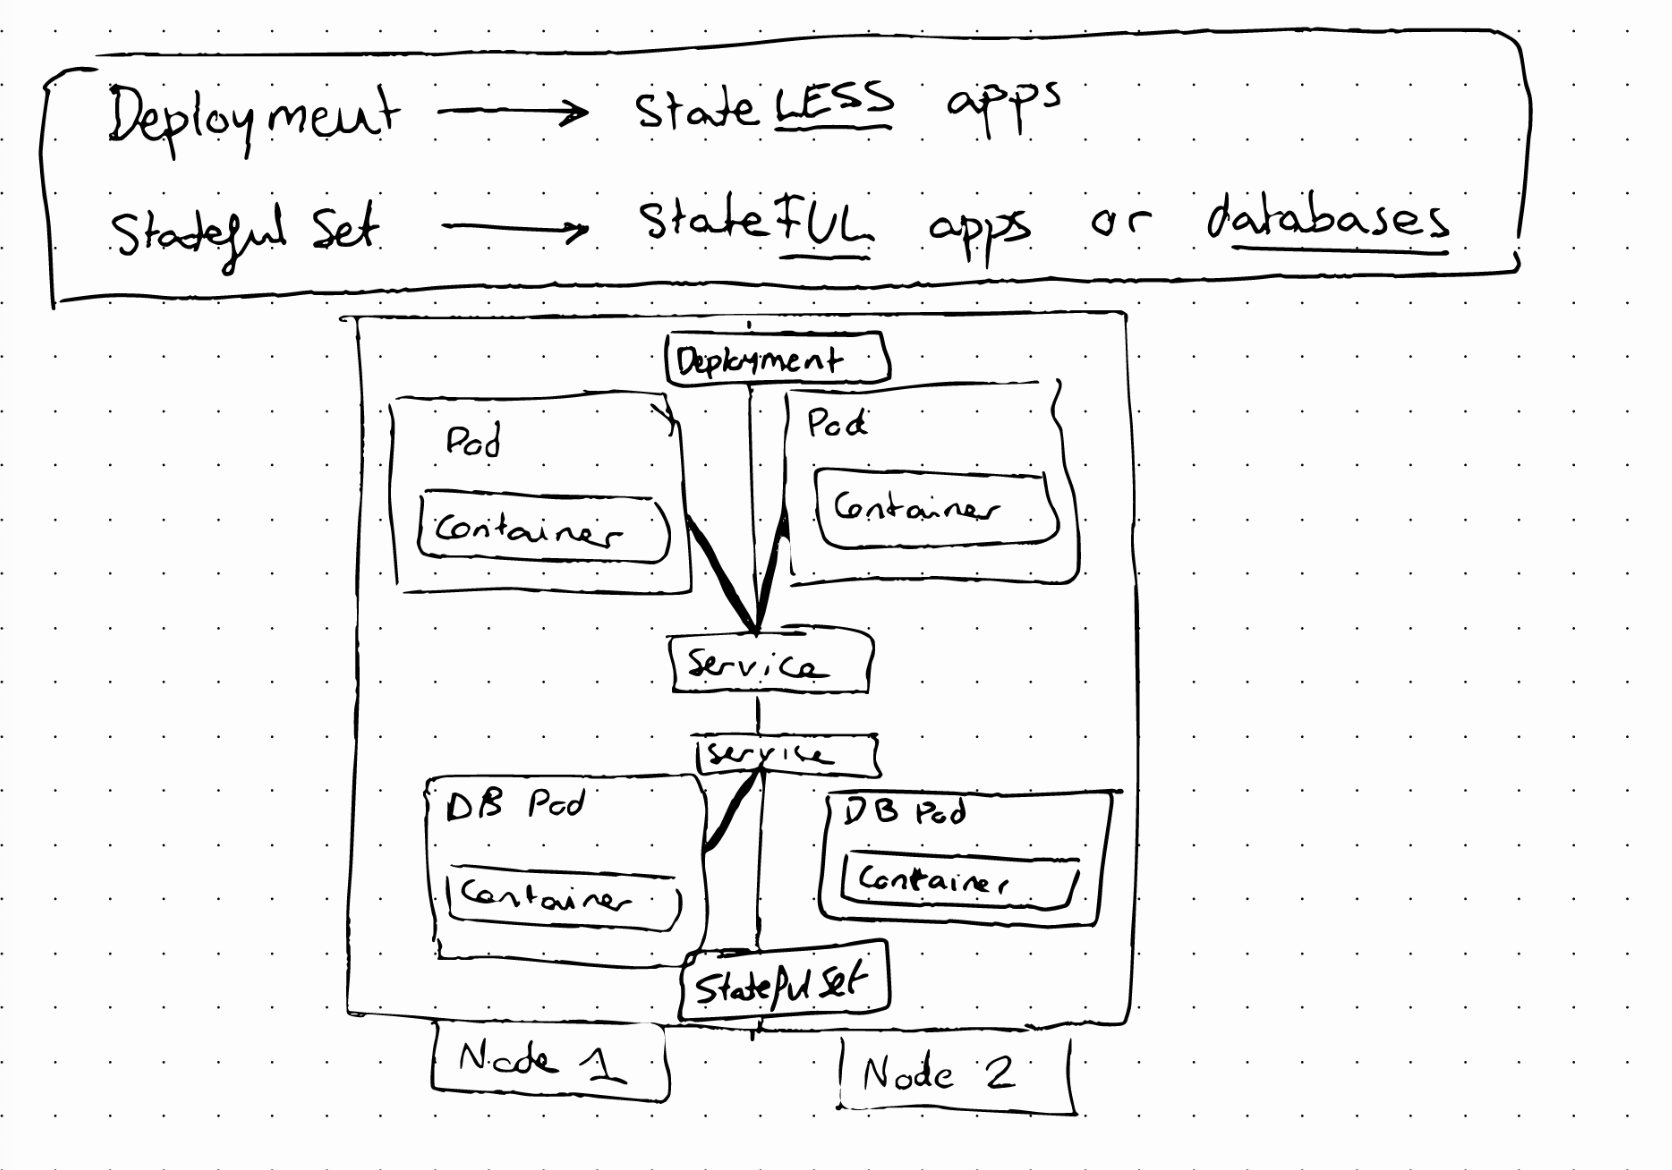 Deployment → stateLESS apps
Stateful Set → stateFUL apps or databases
Deployment
Pod
Container
Pod
Container
Service
Service
DB Pod
Container
DB Pod
Container
Stateful Set
Node 1
Node 2